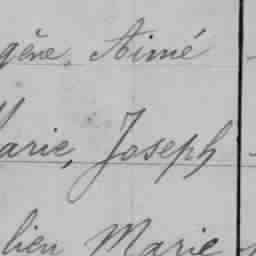 gène, Aimé
Marie, Joseph
lien Marie